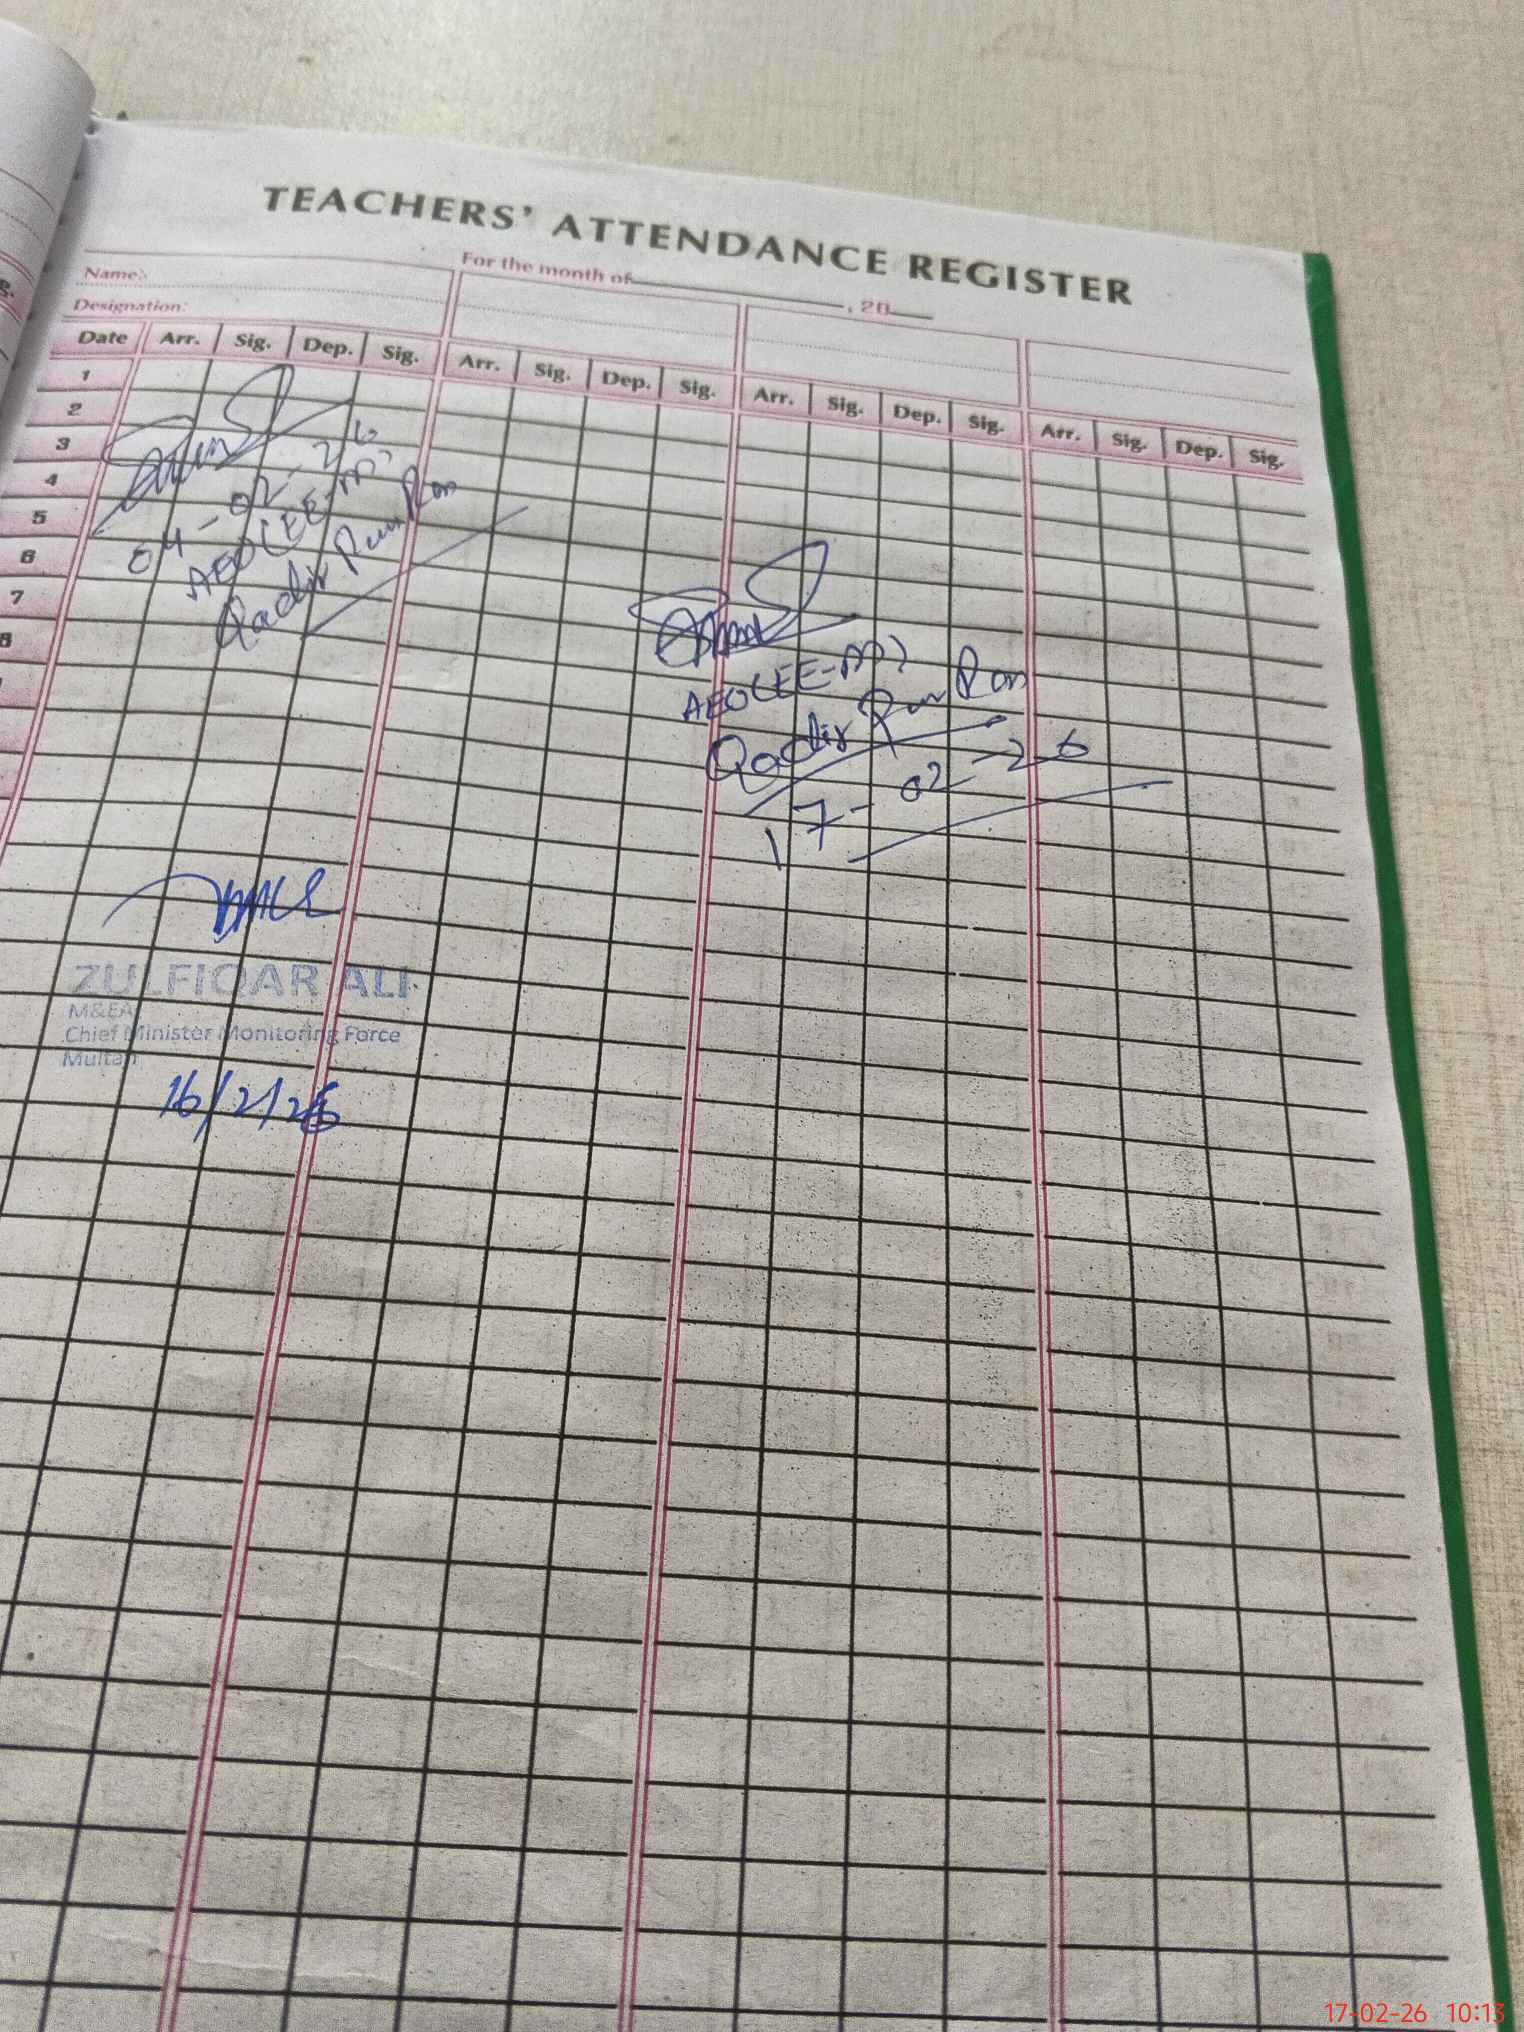 TEACHERS' ATTENDANCE REGISTER
Name:
For the month of , 20
Designation:
Date Arr. Sig. Dep. Sig. Arr. Sig. Dep. Sig. Arr. Sig. Dep. Sig. Arr. Sig. Dep. Sig.
1
2
3
4
5
6
7
8
04-02-26
AEO(EE-M)
Qadir Pur Ran
AEO(EE-M)
Qadir Pur Ran
17-02-26
ZULFIQAR ALI
M&EA
Chief Minister Monitoring Force
Multan
16/2/26
17-02-26 10:13